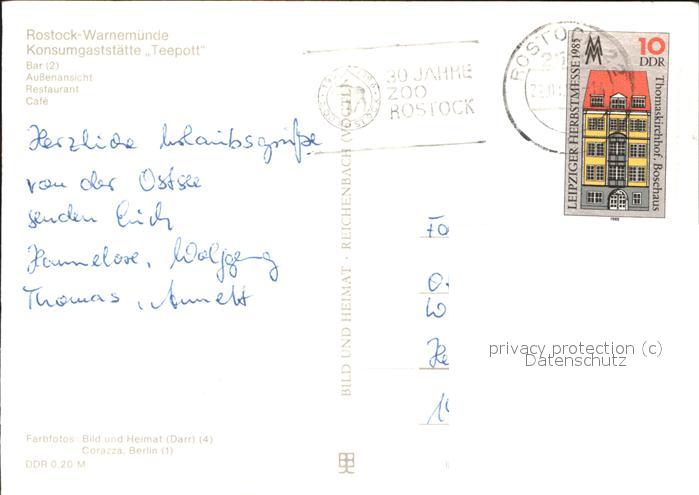 Rostock-Warnemünde
Konsumgaststätte „Teepott"
Bar (2)
Außenansicht
Restaurant
Café
30 JAHRE
ZOO
ROSTOCK
ROSTOCK
10
DDR
LEIPZIGER HERBSTMESSE 1985
Thomaskirchhof, Bosehaus
1985
Herzliche Urlaubsgrüße
von der Ostsee
senden Euch
Hannelore, Wolfgang
Thomas, Annett
BILD UND HEIMAT · REICHENBACH (VOGTL)
privacy protection (c)
Datenschutz
Farbfotos: Bild und Heimat (Darr) (4)
Corazza, Berlin (1)
DDR 0,20 M